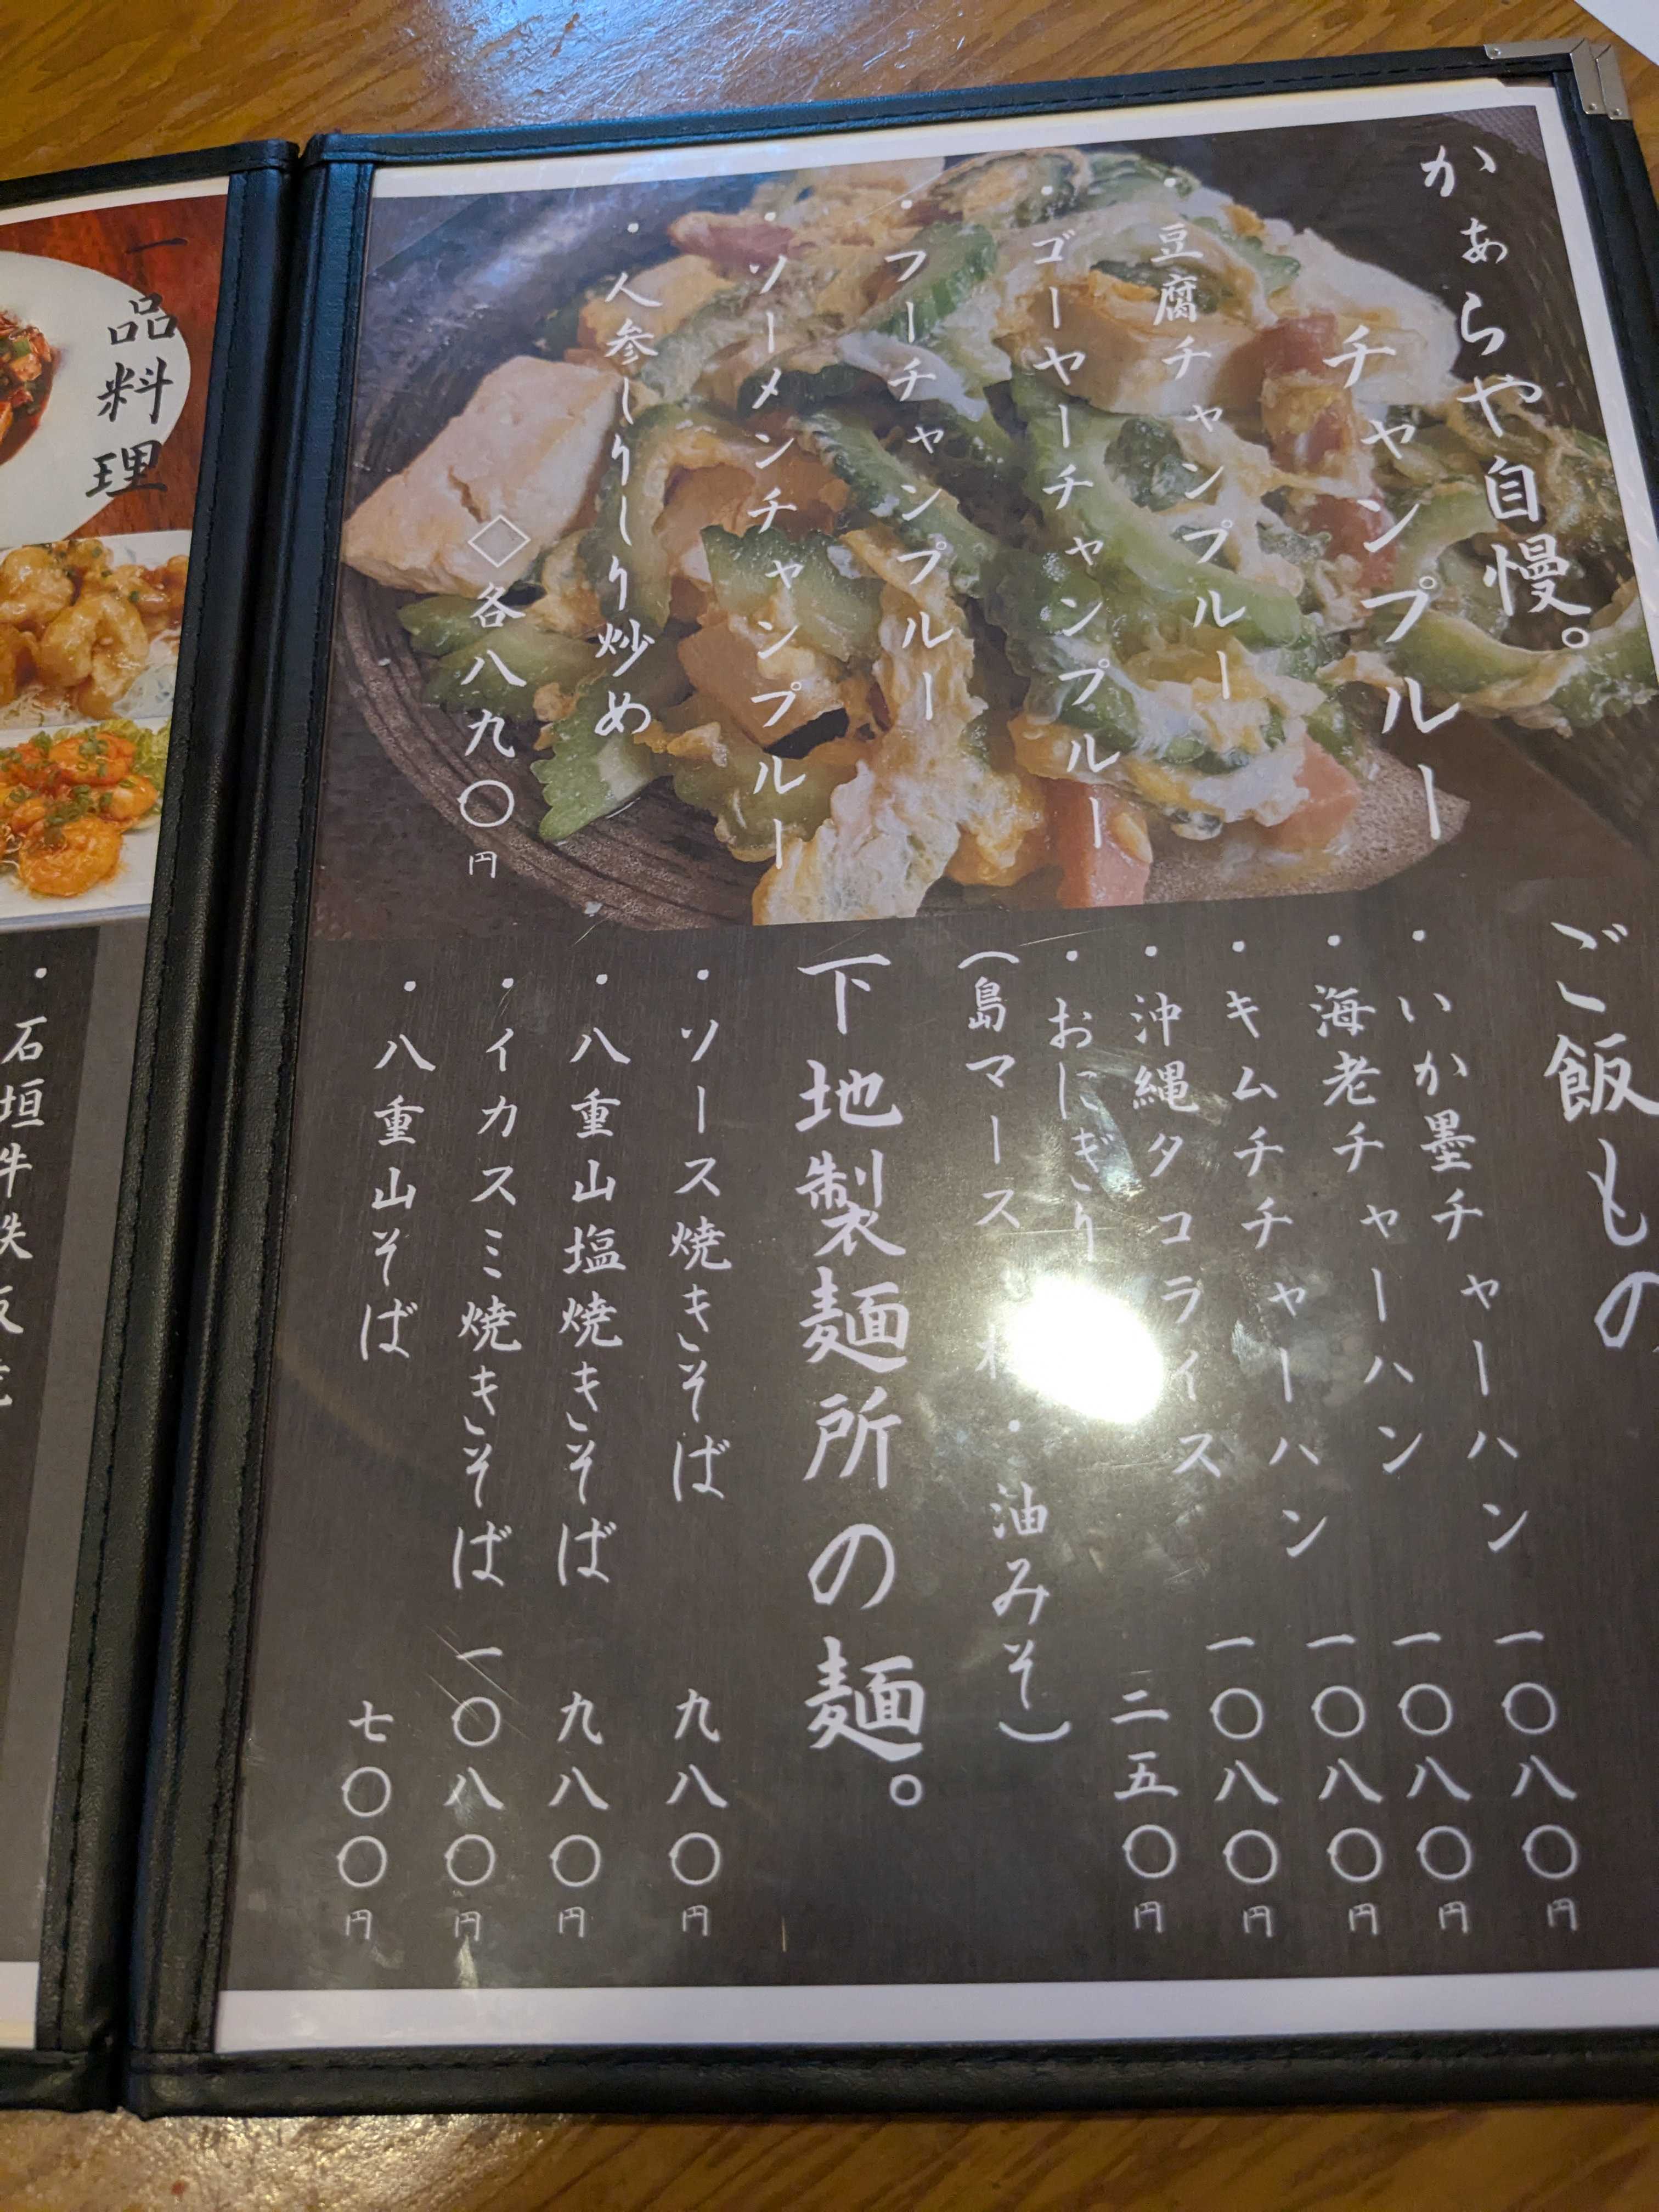 かぁらや自慢。
チャンプルー
・豆腐チャンプルー
・ゴーヤーチャンプルー
・フーチャンプルー
・ソーメンチャンプルー
・人参しりしり炒め
◇各八九〇円
ご飯もの
・いか墨チャーハン 一〇八〇円
・海老チャーハン 一〇八〇円
・キムチチャーハン 一〇八〇円
・沖縄タコライス 一〇八〇円
・おにぎり 二五〇円
(島マース ・油みそ)
下地製麺所の麺。
・ソース焼きそば 九八〇円
・八重山塩焼きそば 九八〇円
・イカスミ焼きそば 一〇八〇円
・八重山そば 七〇〇円
一品料理
・石垣牛鉄板